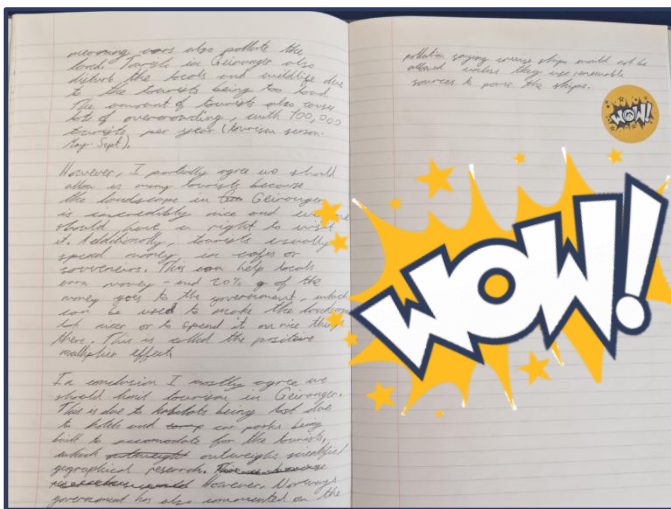 meaning cars also pollute the
land. Tourists in Geiranger also
disturb the locals and wildlife due
to the tourists being too loud
The amount of tourists also cause
lots of overcrowding, with 700,000
tourists per year (tourism season
Sept).
However, I partially agree we should
allow as many tourists because
the landscape in Geiranger
is incredibly nice and
should have a right to visit
it. Additionally, tourists usually
spend money in cafes or
souveneirs. This can help locals
earn money - and 20% of the
money goes to the government, which
can be used to make the landscape
nicer or to spend it on nice things
there. This is called the positive
multiplier effect.
In conclusion I mostly agree we
should limit tourism in Geiranger.
This is due to habitats being lost due
to hotels and car parks being
built to accomodate for the tourists,
which outweighs scientific/
geographical research.
However, Norways
government has also commented on the
pollution saying cruise ships would not be
allowed unless they use renewable
sources to power the ships.
WOW!
WOW!